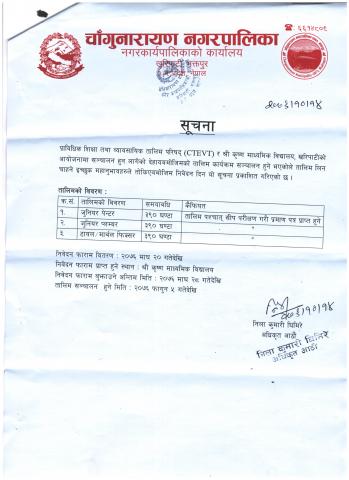 ☎: ६६१४८०८
चाँगुनारायण नगरपालिका
नगरकार्यपालिकाको कार्यालय
खरिपाटी, भक्तपुर
नेपाल
सूचना
प्राविधिक शिक्षा तथा व्यावसायिक तालिम परिषद् (CTEVT) र श्री कृष्ण माध्यमिक विद्यालय, खरिपाटीको
आयोजनामा सञ्चालन हुन लागेको देहायबमोजिमको तालिम कार्यक्रम सञ्चालन हुने भएकोले तालिम लिन
चाहने इच्छुक महानुभावहरुले तोकिएबमोजिम निवेदन दिन यो सूचना प्रकाशित गरिएको छ ।
तालिमको विवरण :
क्र.सं. तालिमको विवरण समयावधि कैफियत
१. जुनियर पेन्टर ३९० घण्टा तालिम पश्चात् सीप परीक्षण गरी प्रमाण पत्र प्राप्त हुने
२. जुनियर प्लम्बर ३९० घण्टा
३ टायल/मार्बल फिक्सर ३९० घण्टा
निवेदन फाराम वितरण : २०७६ माघ २० गतेदेखि
निवेदन फाराम प्राप्त हुने स्थान : श्री कृष्ण माध्यमिक विद्यालय
निवेदन फाराम बुझाउने अन्तिम मिति : २०७६ माघ २८ गतेदेखि
तालिम सञ्चालन हुने मिति : २०७६ फागुन ५ गतेदेखि
जिला कुमारी घिमिरे
अधिकृत आठौं
जिला कुमारी घिमिरे
अधिकृत आठौं